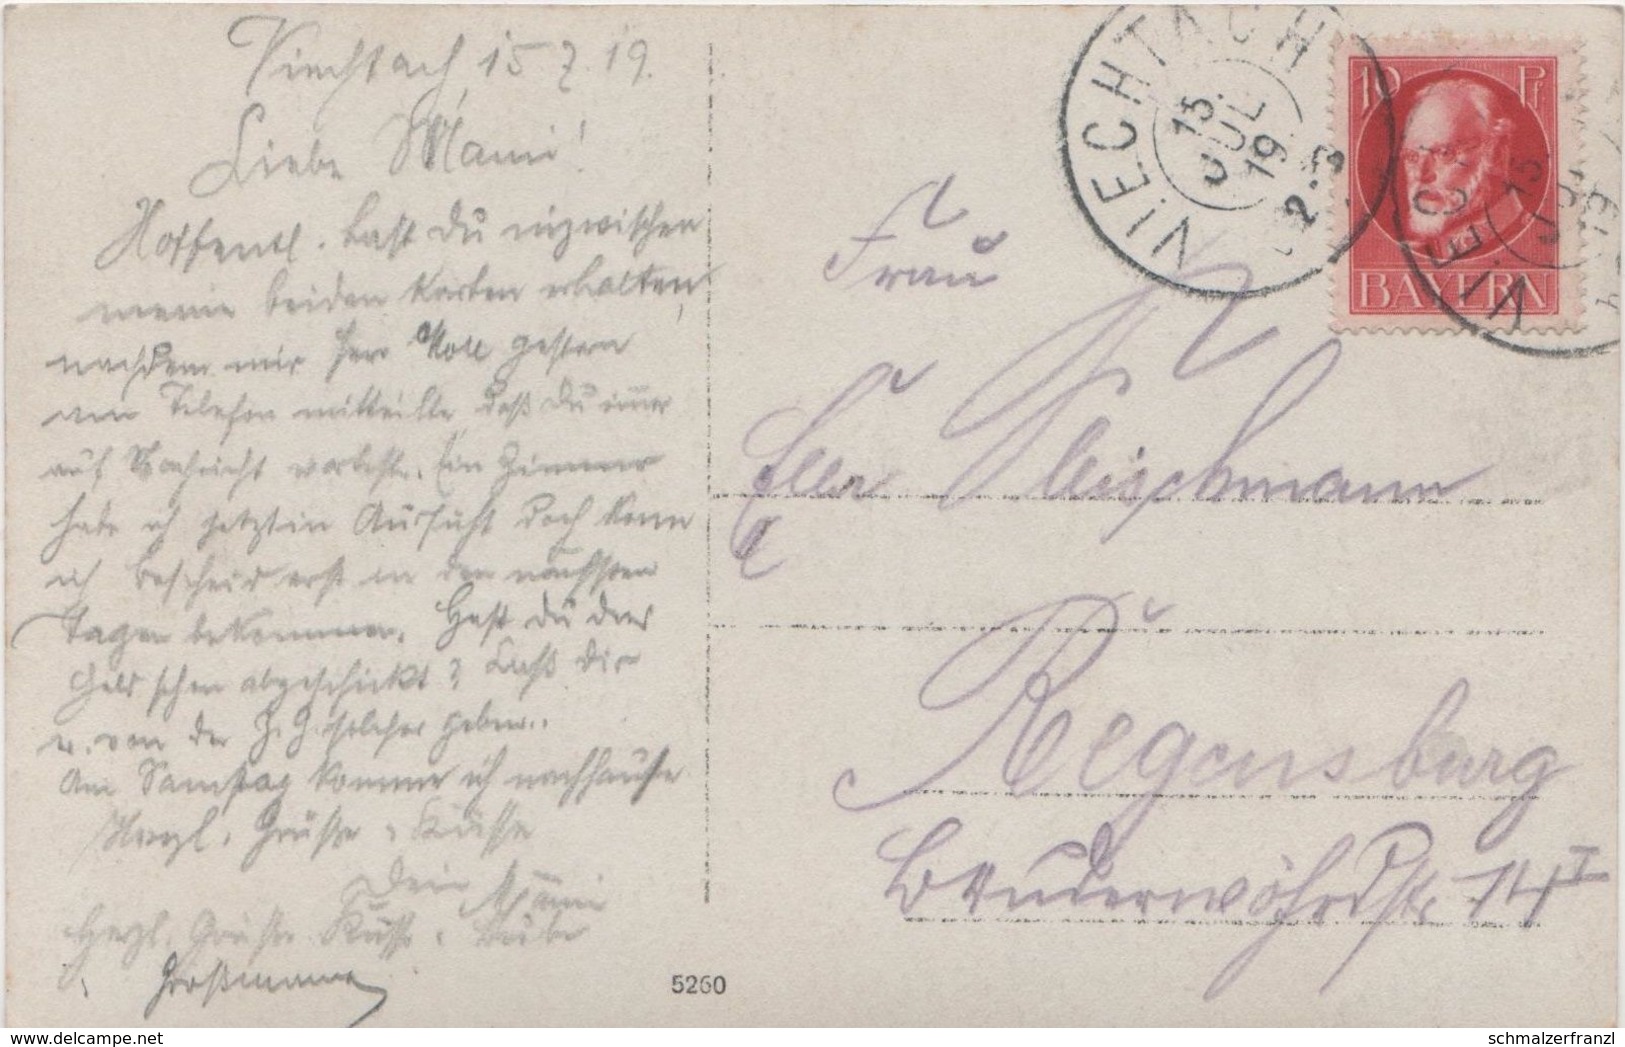 Viechtach, 15.7.19.
Liebe Mami!
Hoffentl. hast Du inzwischen
meine beiden Karten erhalten,
nachdem mir Herr gestern
am Telefon mitteilte, daß Du immer
auf Nachricht wartest. Ein Zimmer
habe ich jetzt in Aussicht doch kann
ich Bescheid erst in den nächsten
Tagen bekommen. Hast Du das
Geld schon abgeschickt? Laß Dir
u. von der geben.
Am Samstag komme ich nachhause
Herzl. Grüße u. Küsse
Dein
Herzl. Grüße Küsse
Großmama
5260
VIECHTACH
15 JUL 19
2-3
10 Pf
BAYERN
VIECH
15
Frau
Ella Fleischmann
Regensburg
Bruderwöhrdstr. 14 I
www.delcampe.net
schmalzerfranzl